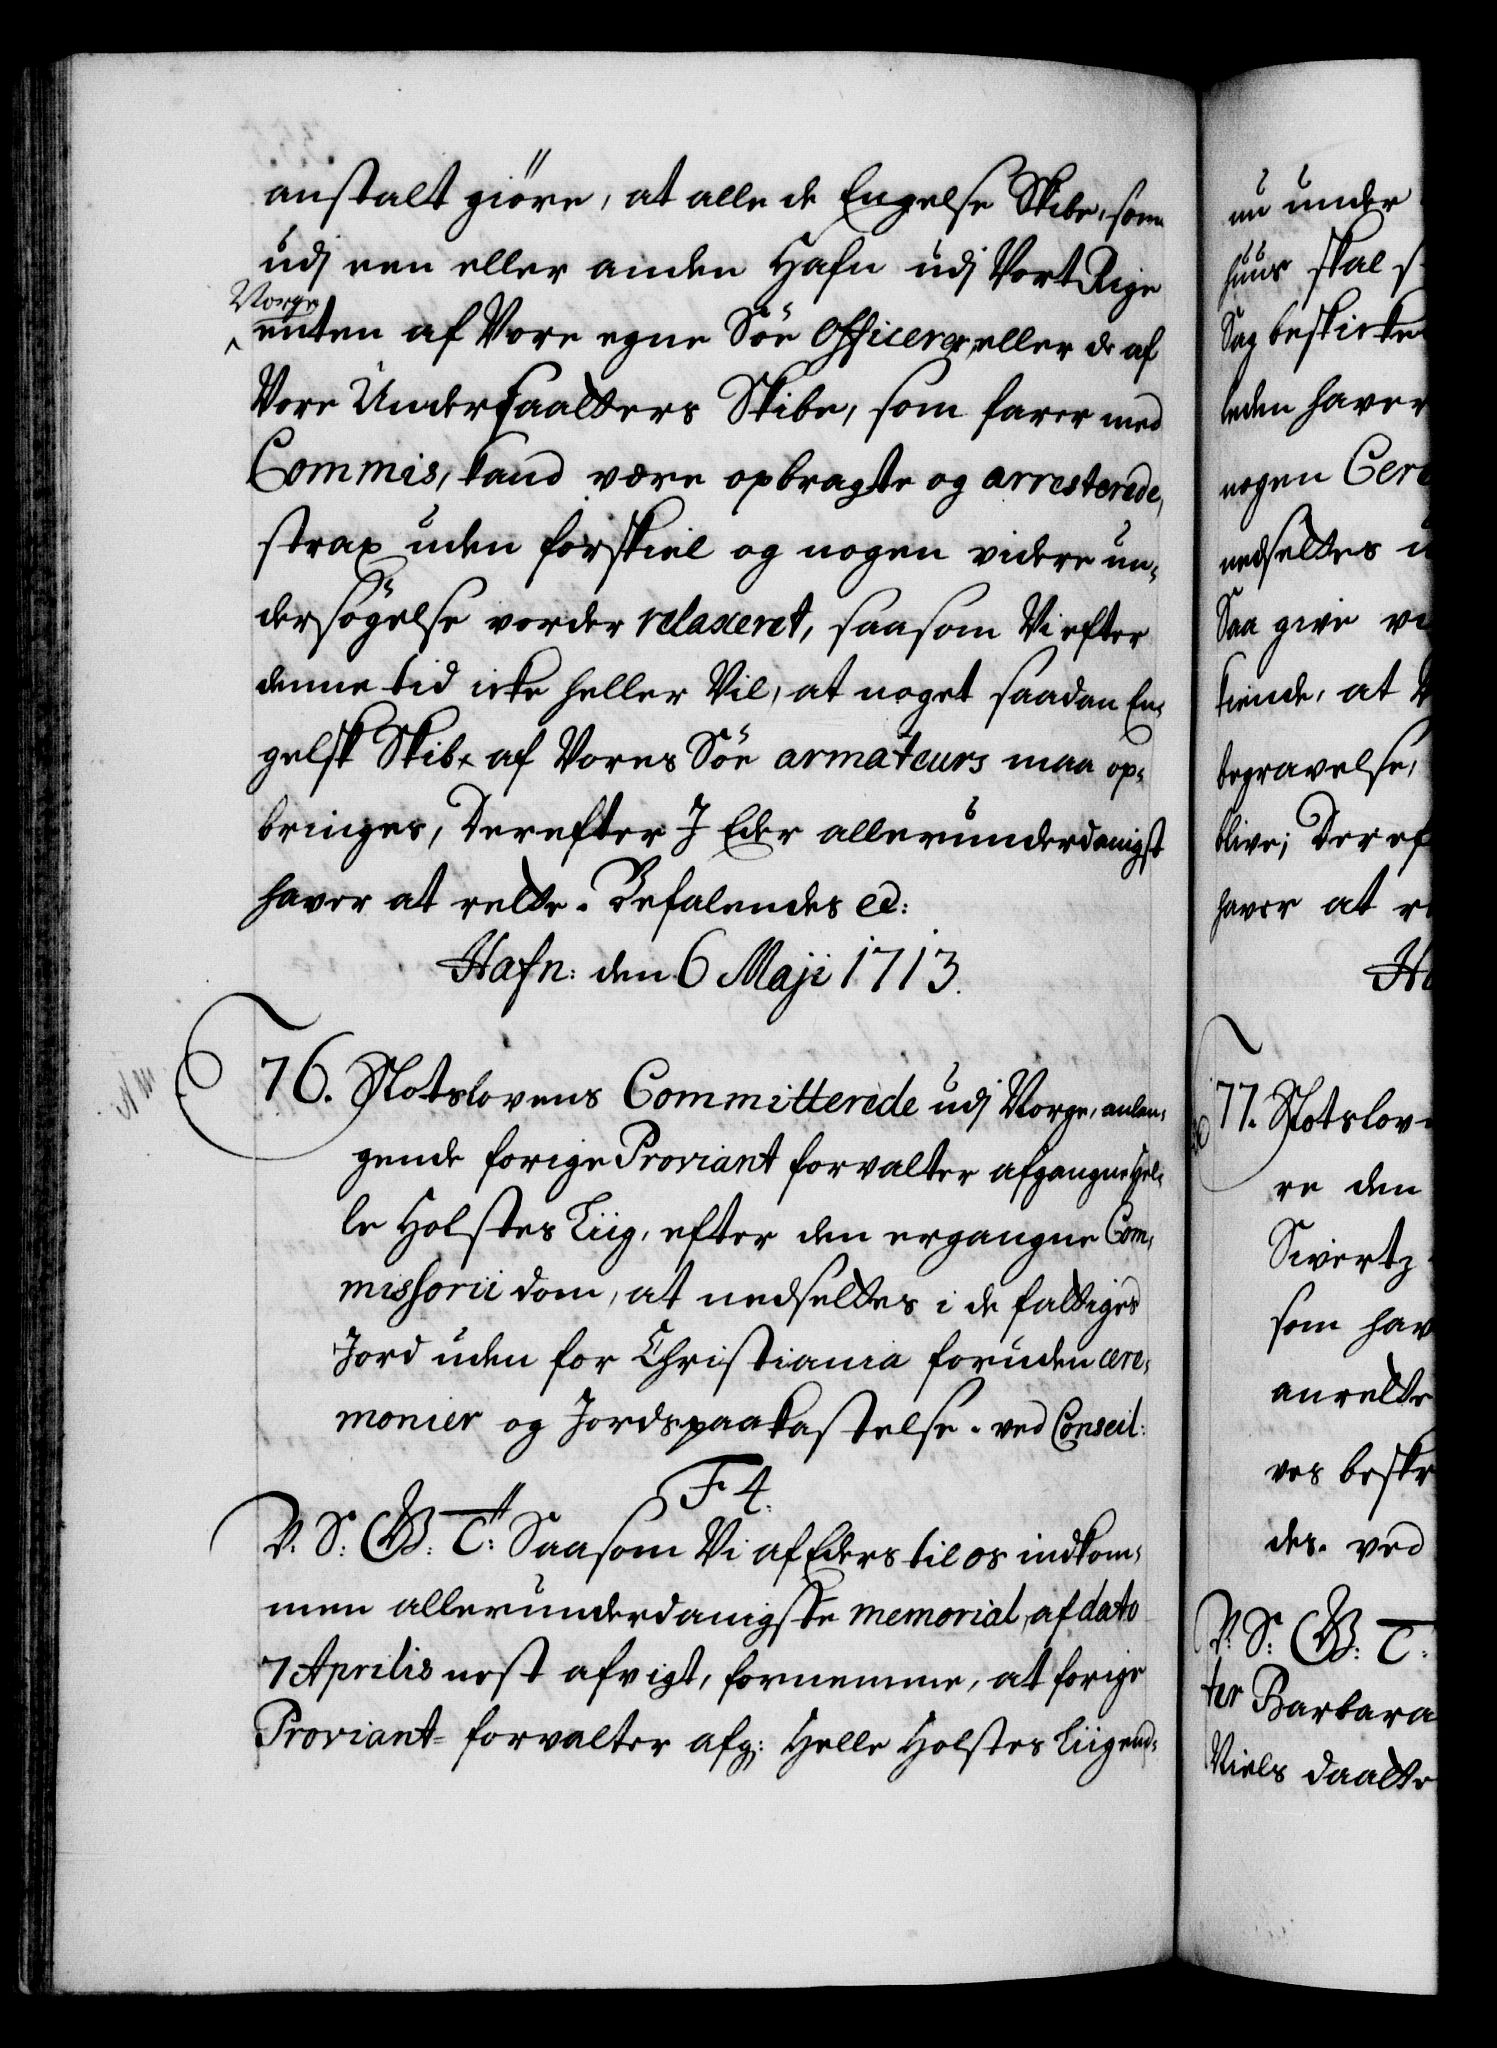 anstalt giöre, at alle de Engelse Skibe, som
udj een eller anden Hafn udj Vort Rige
Norge
enten af Vore egne Söe Officerer, eller de af
Vore Undersaatters Skibe, som farer med
Commis, kand være opbragte og arresterede,
strax uden forskiel og nogen videre un-
dersögelse vorder relaxeret, saasom Vi efter
denne tid icke heller Vil, at noget saadan En-
gelsk Skib af Vores Söe armateurs maa op-
bringes, Derefter J Eder allerunderdanigst
haver at rette. Befalendes etc:
Hafn: den 6 Maji 1713.
76. Slotslovens Committerede udj Norge, anlan-
gende forige Proviant forvalter afgangne Hel-
le Holstes Liig, efter den ergangne Com-
missorii dom, at nedsettes i de fattiges
Jord uden for Christiania foruden cere-
monier og Jordspaakastelse. ved Conseil:
F 4.
V. S: G: T: Saasom Vi af Eders til os indkom-
men allerunderdanigste memorial, af dato
7 Aprilis nest afvigt, fornemme, at forige
Proviant-forvalter afg: Helle Holstes Liig end-
nu under
huus skal s
Sag beskicke
leden haver
nogen Cere
nedsettes u
Saa give vi
kiende, at V
begravelse,
blive; Deref
haver at re
Ha
77. Slotslov
re den
Sivertz
som hav
anrette
ves beskr
des. ved
V. S: G: T:
ter Barbara
Niels daatte